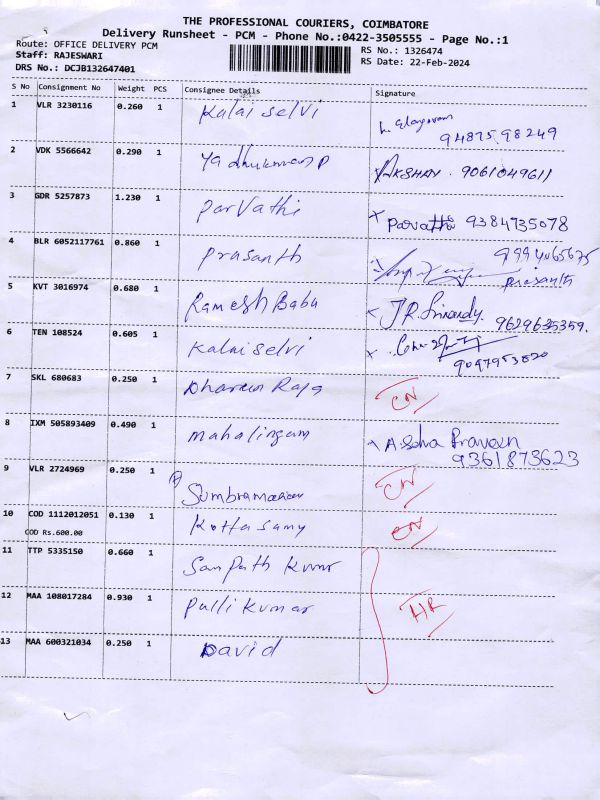 THE PROFESSIONAL COURIERS, COIMBATORE
Delivery Runsheet - PCM - Phone No.:0422-3505555 - Page No.:1
Route: OFFICE DELIVERY PCM
Staff: RAJESWARI
DRS No.: DCJB132647401
RS No.: 1326474
RS Date: 22-Feb-2024
S No Consignment No Weight PCS Consignee Details Signature
1 VLR 3230116 0.260 1 Kalai selvi 94875 98249
2 VDK 5566642 0.290 1 Yadhukumar P 9061049611
3 GDR 5257873 1.230 1 Parvathi Parvathi 9384735078
4 BLR 6052117761 0.860 1 Prasanth 9994065675
prasanth
5 KVT 3016974 0.680 1 Ramesh Babu 9629635359.
6 TEN 108524 0.605 1 Kalai selvi
7 SKL 680683 0.250 1 Dharun Raja CN
8 IXM 505893409 0.490 1 mahalingam Asha Praveen
9361873623
9 VLR 2724969 0.250 1 CN
10 COD 1112012051 0.130 1 Kotta samy CN
COD Rs.600.00
11 TTP 5335150 0.660 1 Sampath Kumar
12 MAA 108017284 0.930 1 Pulli Kumar HR
13 MAA 600321034 0.250 1 David